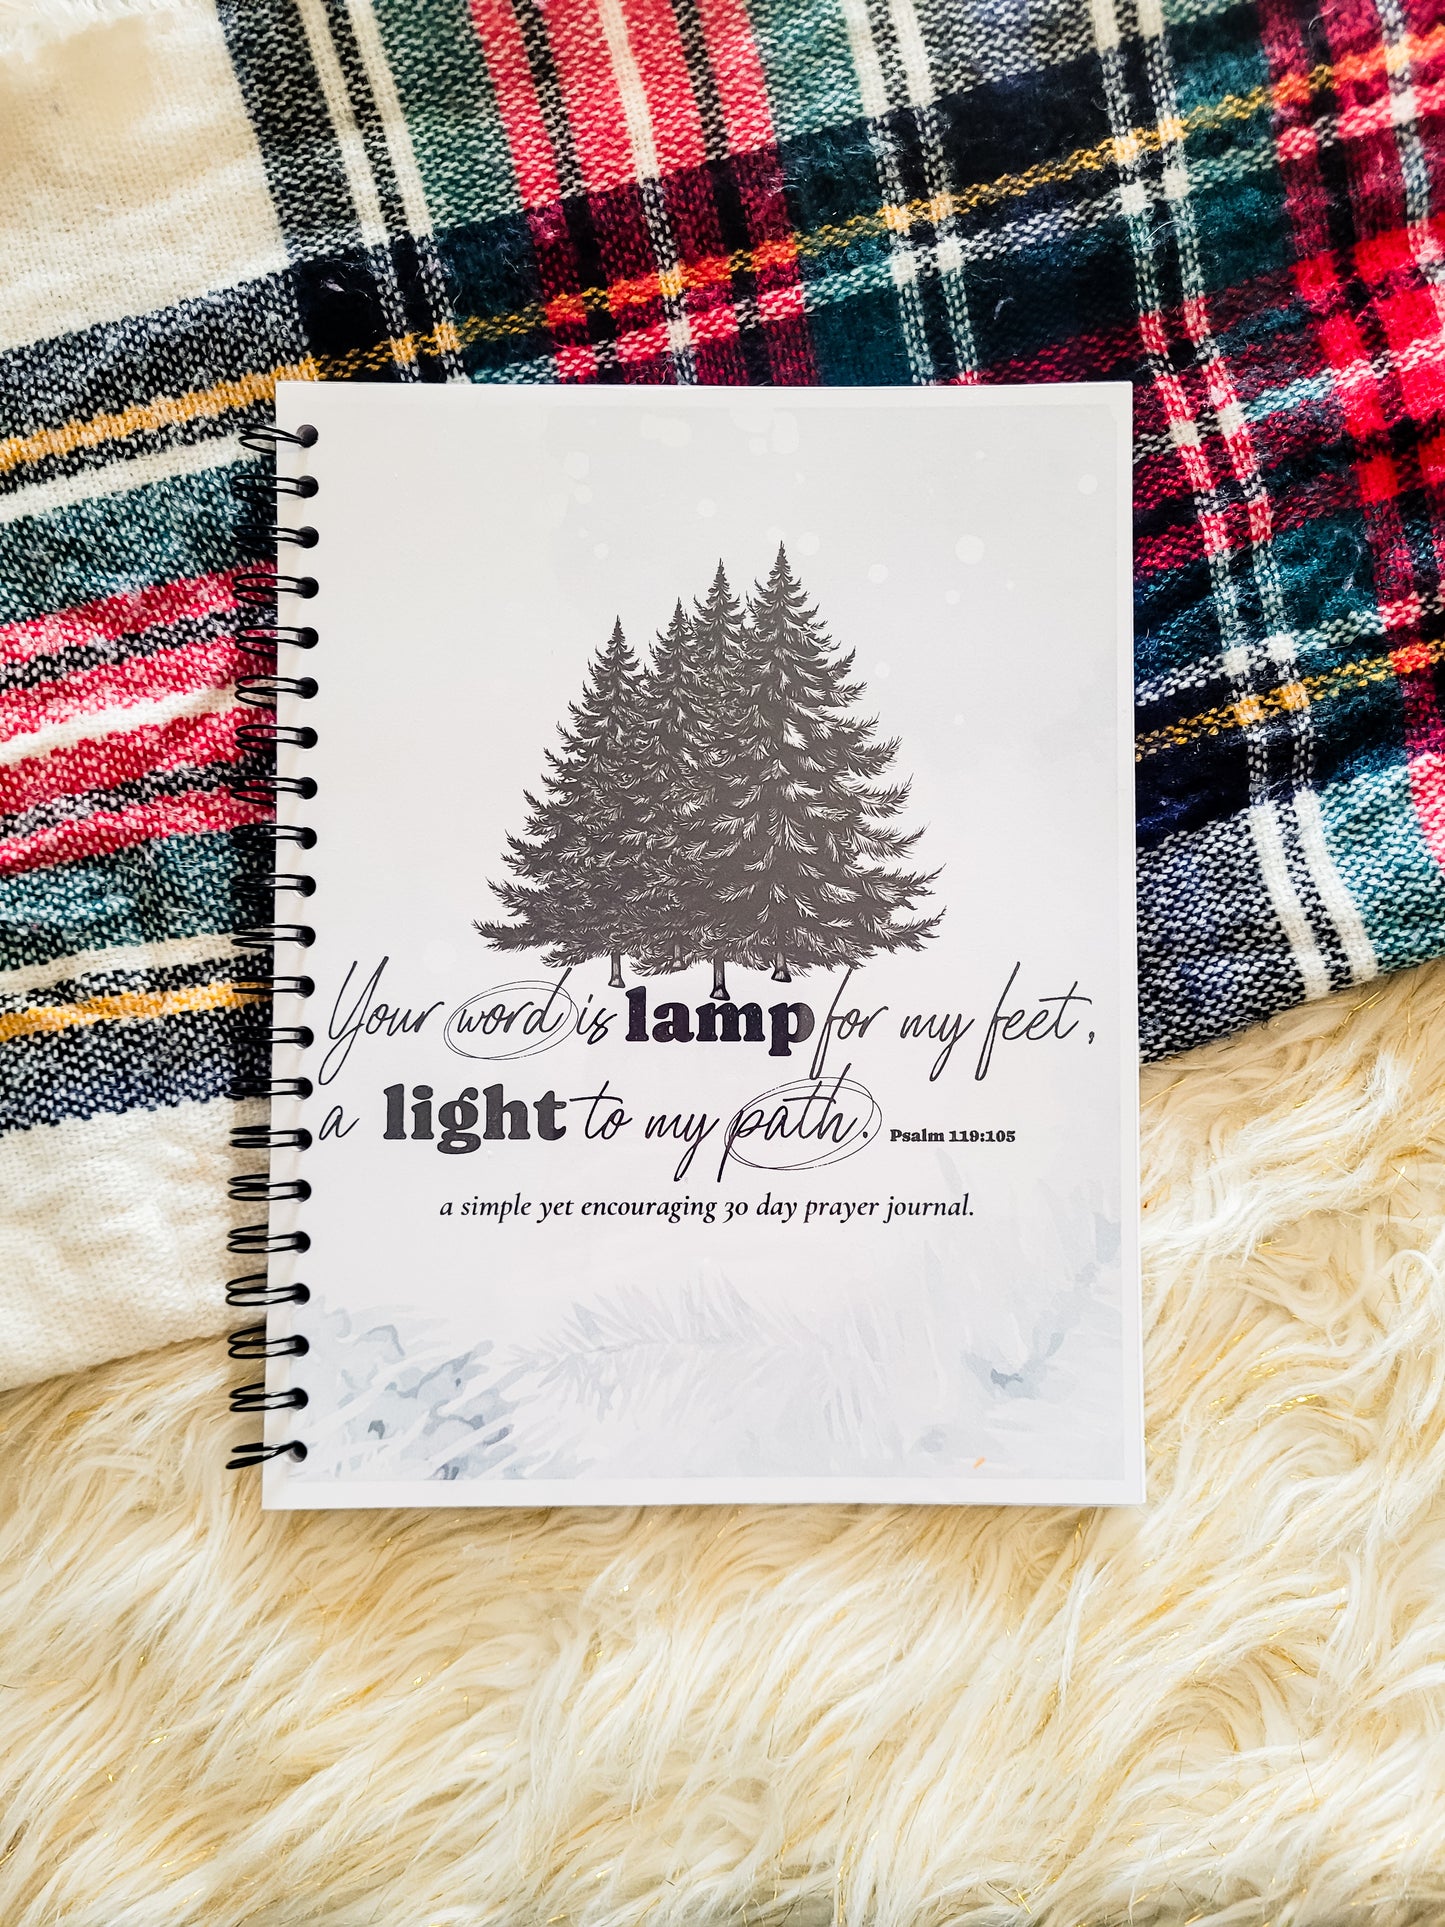 Your word is lamp for my feet,
a light to my path. Psalm 119:105
a simple yet encouraging 30 day prayer journal.